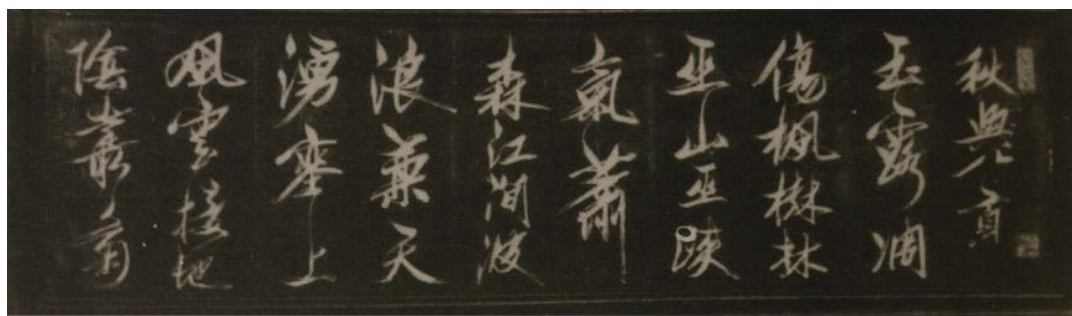 秋興八首
玉露凋
傷楓樹林
巫山巫峽
氣蕭
森江間波
浪兼天
湧塞上
風雲接地
陰叢菊